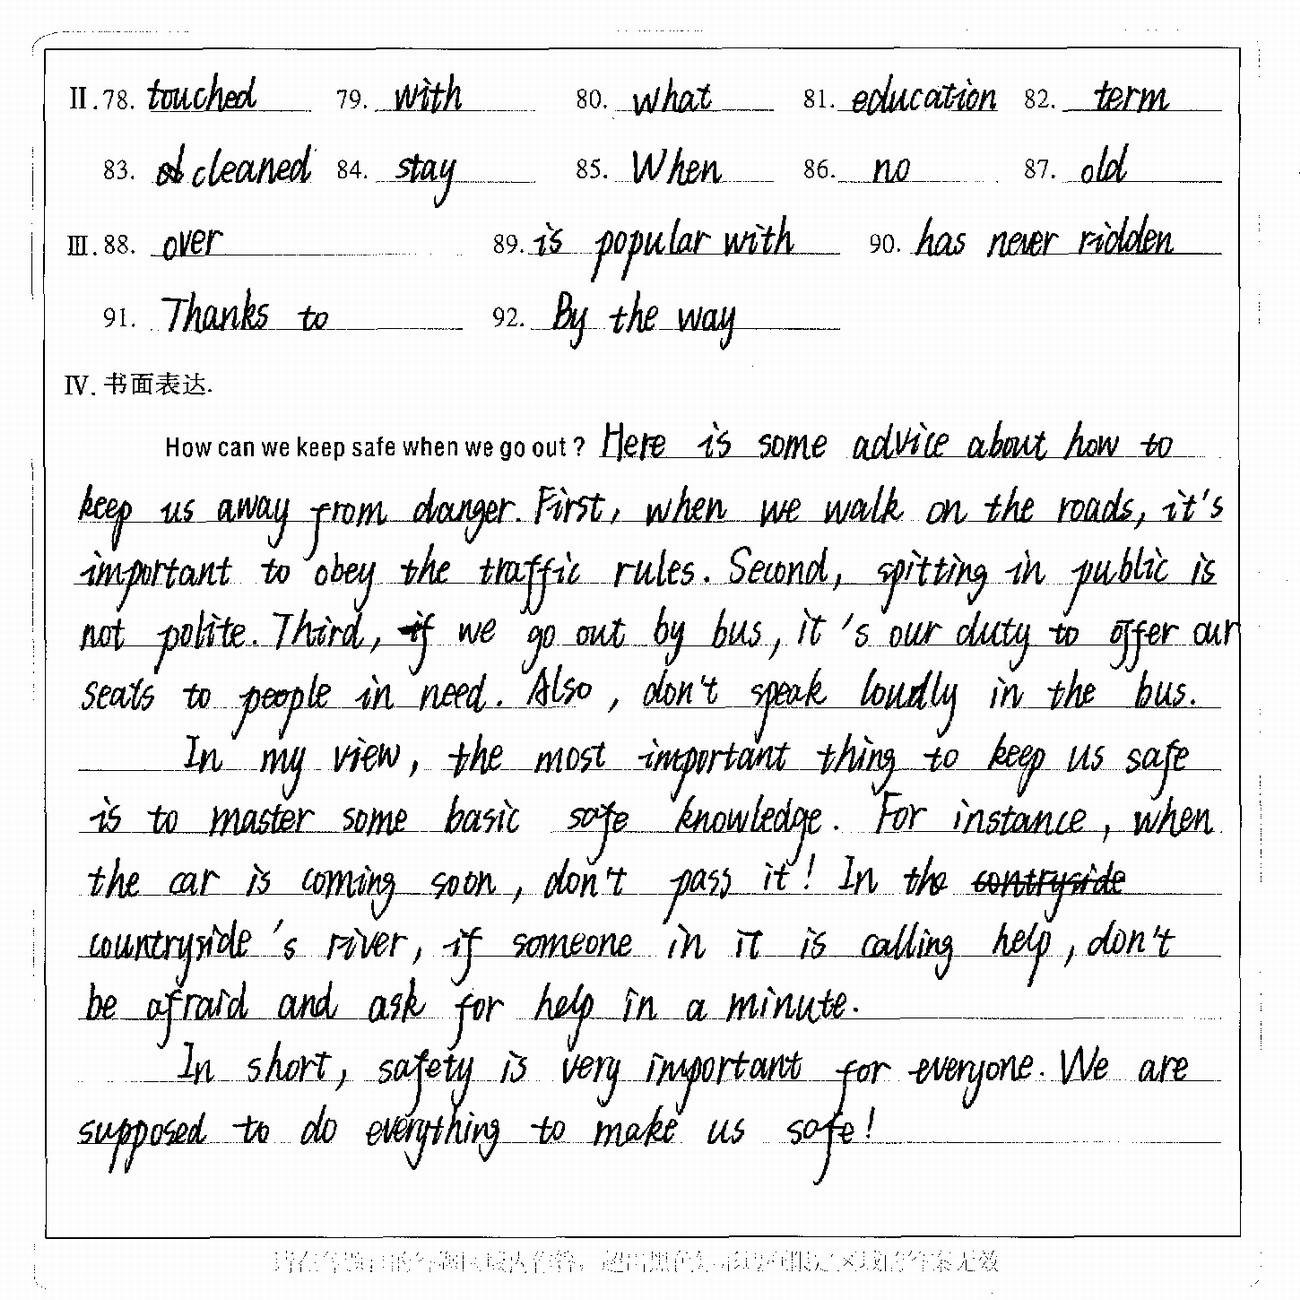 II.78. touched 79. with 80. what 81. education 82. term
83. cleaned 84. stay 85. When 86. no 87. old
III.88. over 89. is popular with 90. has never ridden
91. Thanks to 92. By the way
IV. 书面表达.
How can we keep safe when we go out? Here is some advice about how to
keep us away from danger. First, when we walk on the roads, it's
important to obey the traffic rules. Second, spitting in public is
not polite. Third, if we go out by bus, it's our duty to offer our
seats to people in need. Also, don't speak loudly in the bus.
In my view, the most important thing to keep us safe
is to master some basic safe knowledge. For instance, when
the car is coming soon, don't pass it! In the contryside
countryside's river, if someone in it is calling help, don't
be afraid and ask for help in a minute.
In short, safety is very important for everyone. We are
supposed to do everything to make us safe!